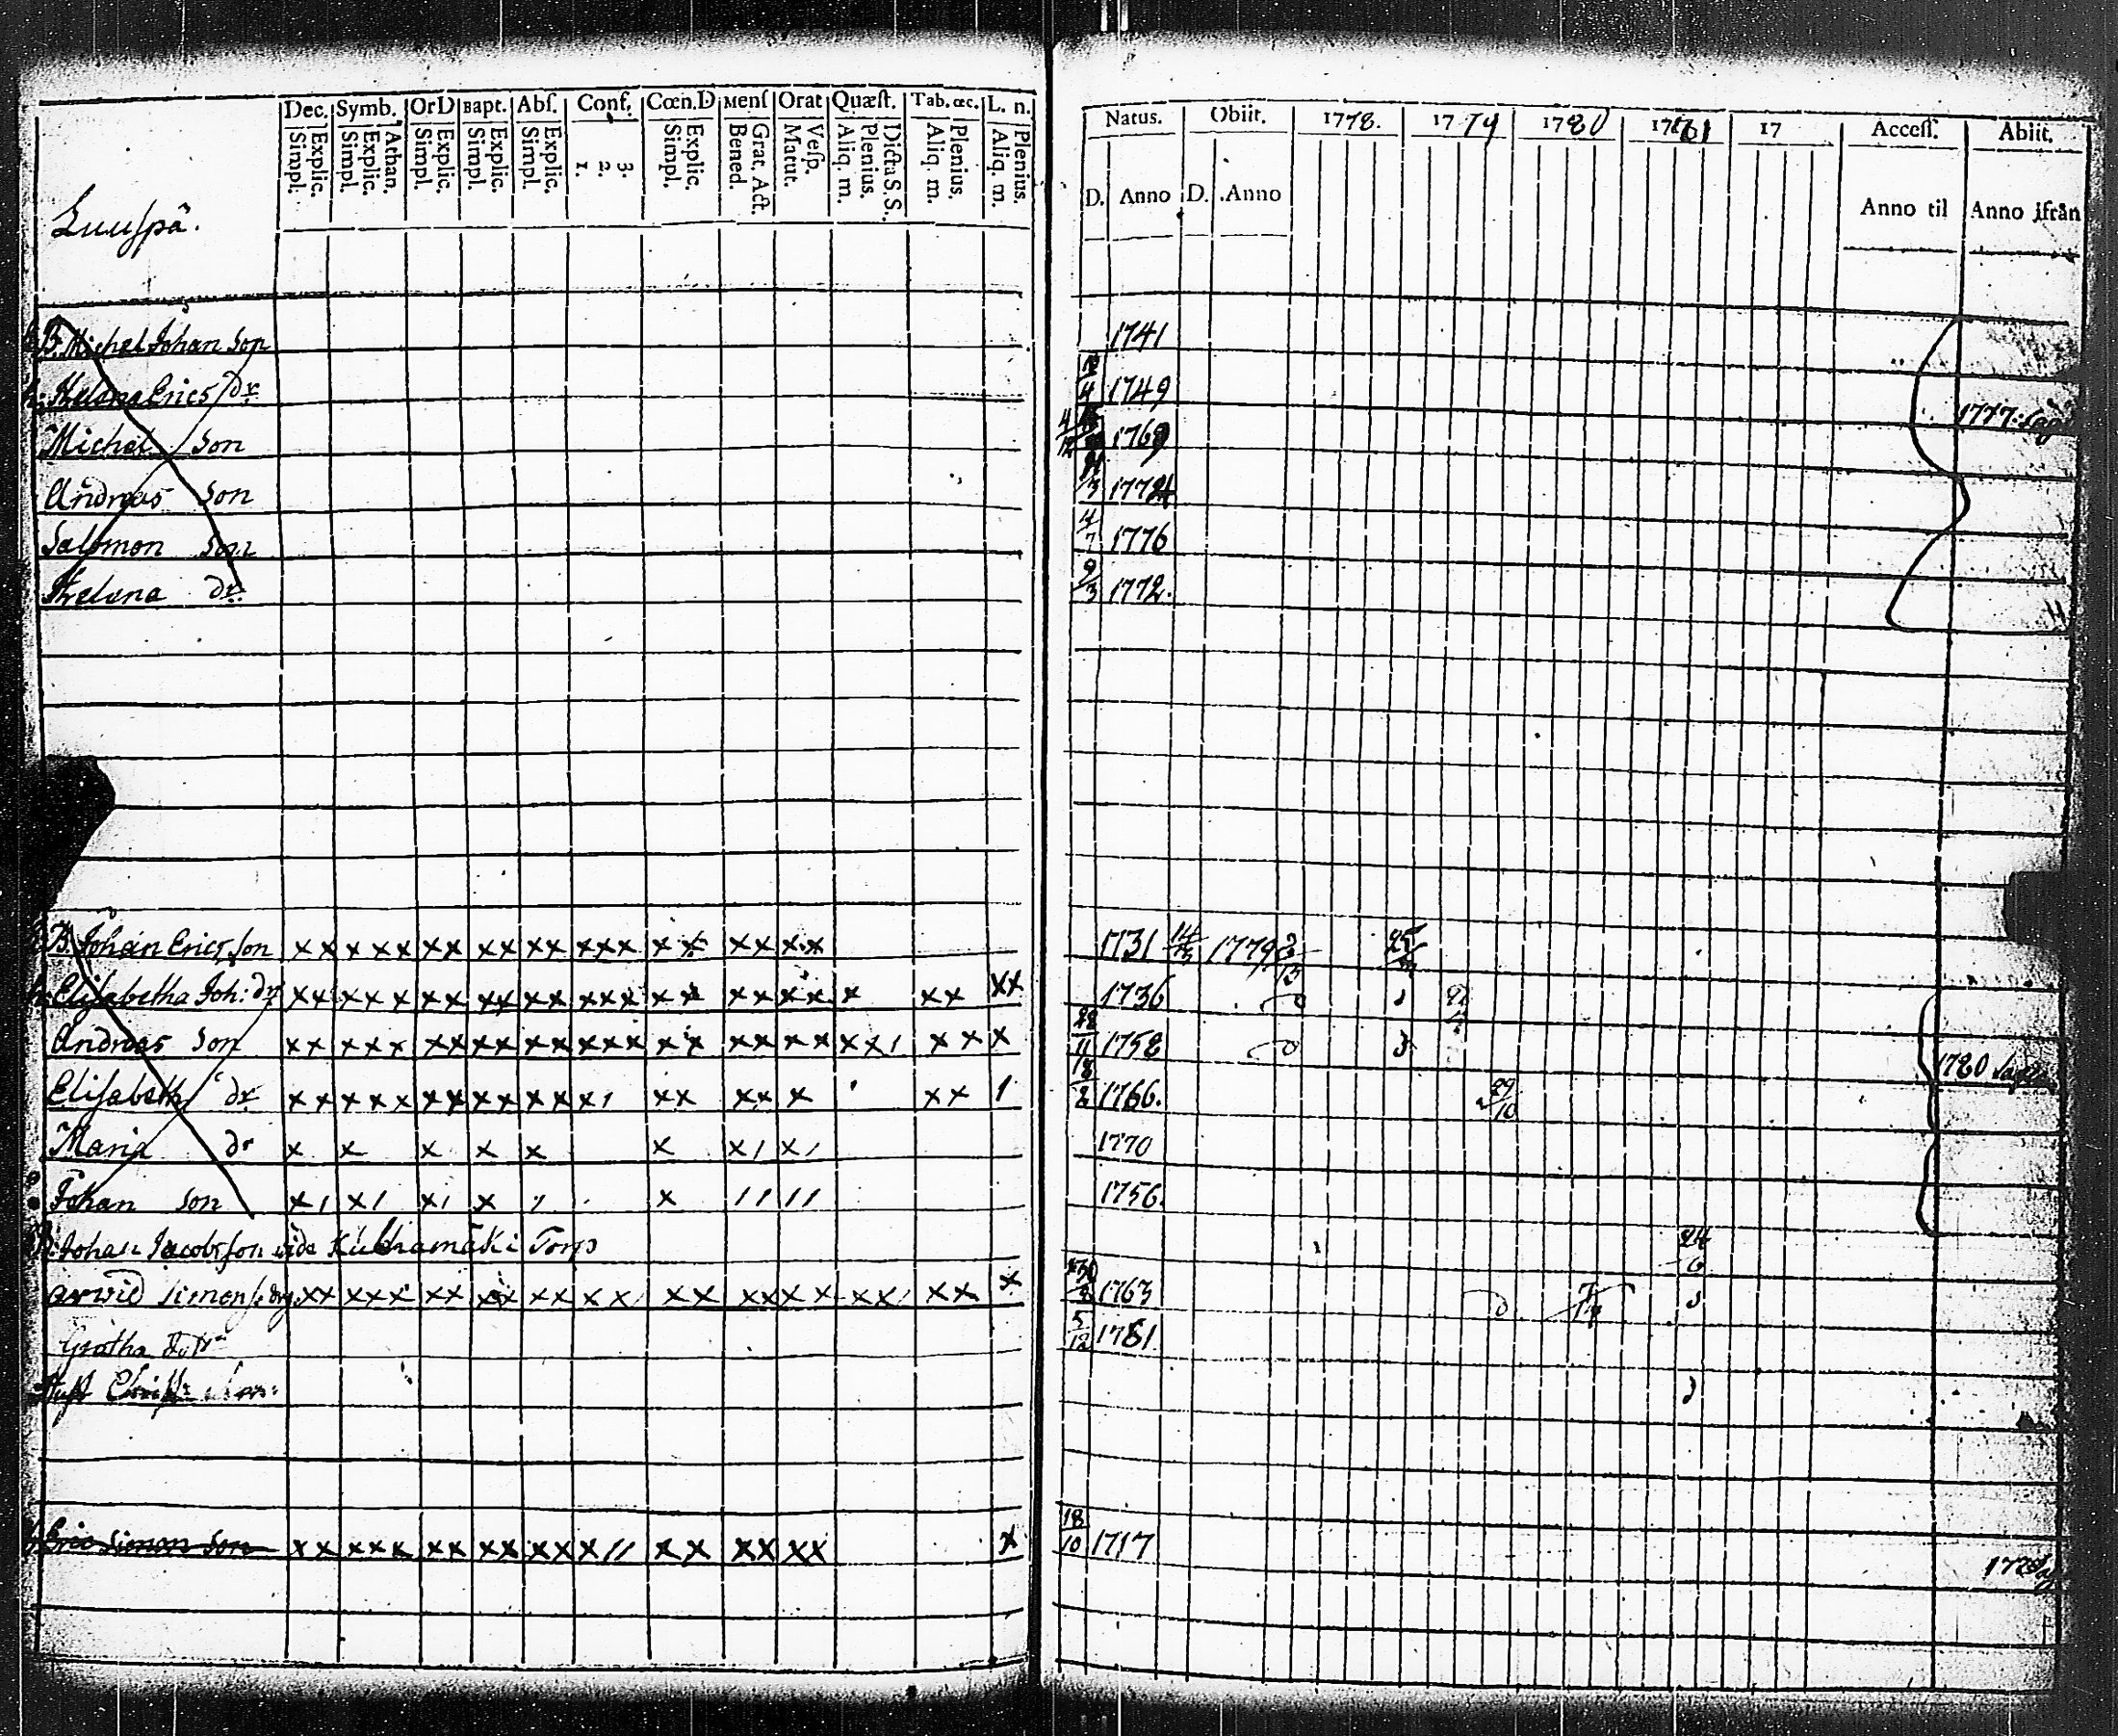 Dec. Symb. Or D Bapt. Abs. Conf. Cœn.D Mens Orat Quæst. Tab. œc. L. n.
Simpl. Explic. Simpl. Explic. Athan. Simpl. Explic. Simpl. Explic. Simpl. Explic. 1. 2. 3. Simpl. Explic. Bened. Grat. Act. Matut. Vesp. Aliq. m. Plenius. Dicta S. S. Aliq. m. Plenius. Aliq. m. Plenius.
Luuspä.
B. Michel Johan Son
h. Helena Erics dr.
Michel Son
Andreas Son
Salomon Son
Helena dr.
B. Johan Erics son x x x x x x x x x x x x x x x x x x x x
h. Elisabetha Joh: dr x x x x x x x x x x x x x x x x x x x x x x x x x
Andreas Son x x x x x x x x x x x x x x x x x x x x 1 x x x
Elisabeth dr x x x x x x x x x x x x 1 x x x x x x x 1
Maria dr x x x x x x x 1 x 1
Johan son x 1 x 1 x 1 x 1 x 1 1 1 1
Johan Jacobsson vide Kuhamäki Torp
Arvid Simons. drg. x x x x x x x x x x x x x x x x x x x x x x x x
Gretha dotr
Eric Simon Son x x x x x x x x x x x x 1 1 x x x x x x x
Natus. Obiit. 1778. 1779 1780 1781 17 Access. Abiit.
D. Anno D. Anno Anno til Anno ifrån
1741
1749
4/12 1769
3 1774
4/7 1776
9/3 1772.
1777.
1731 1779 25
1736
28/11 1758
18/2 1766. 29/10
1770
1756.
1780
24/6
1763
5/12 1781
18/10 1717